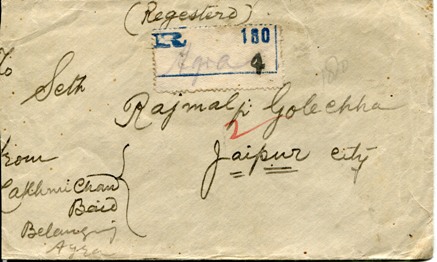 (Registerd)
R 180
Agra 4
To
Seth
Rajmalji Golechha
2
Jaipur City
From
Lakhmi Chan
Baid
Belanganj
Agra